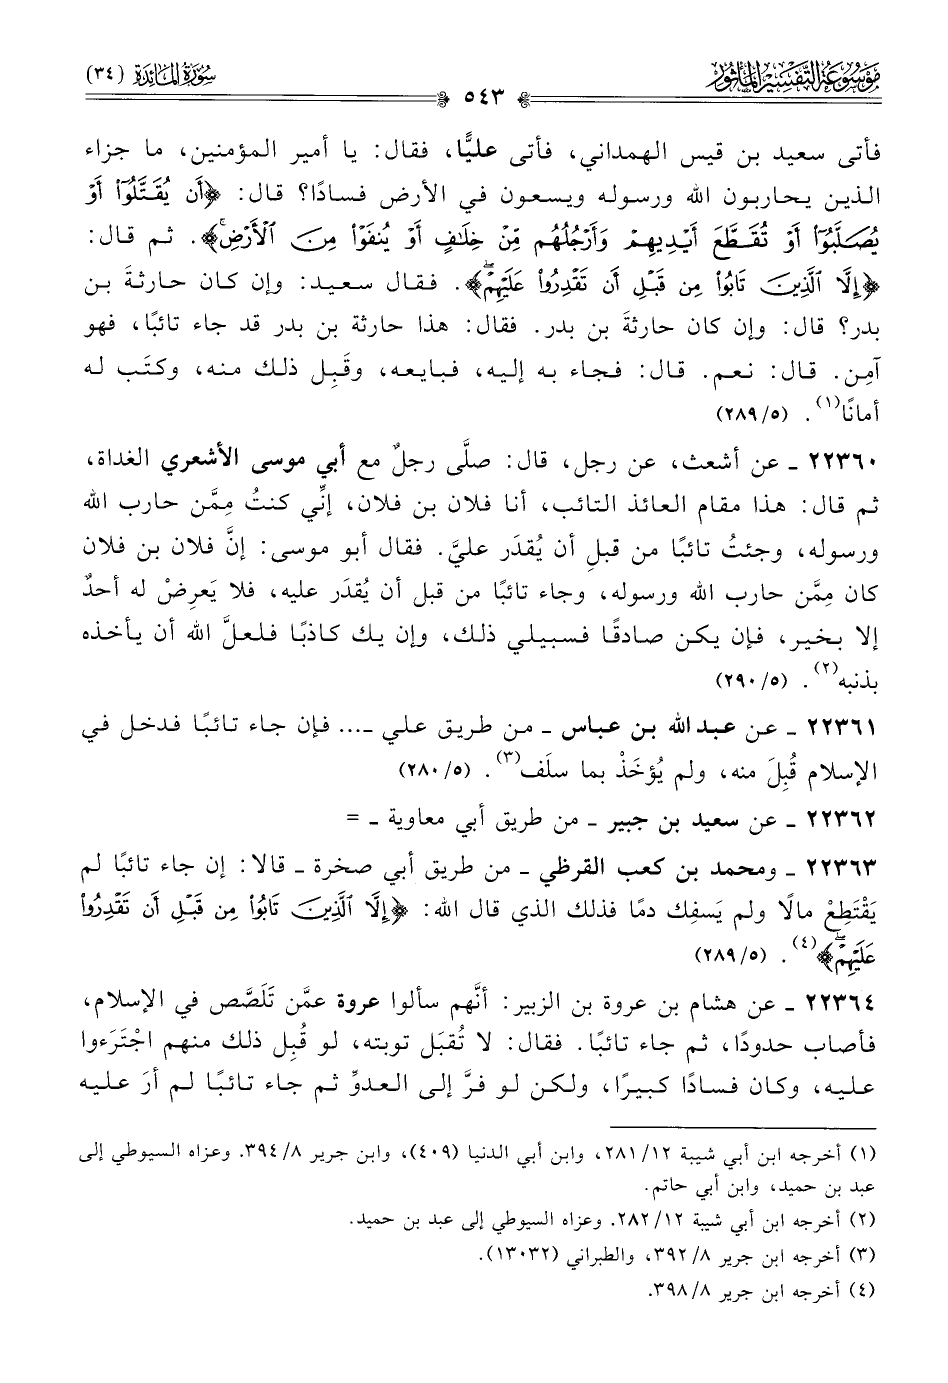 موسوعة التفسير المأثور
٥٤٣
سورة المائدة (٣٤)
فأتى سعيد بن قيس الهمداني، فأتى عليًّا، فقال: يا أمير المؤمنين، ما جزاء
الذين يحاربون الله ورسوله ويسعون في الأرض فسادًا؟ قال: ﴿أَن يُقَتَّلُوٓا۟ أَوْ
يُصَلَّبُوٓا۟ أَوْ تُقَطَّعَ أَيْدِيهِمْ وَأَرْجُلُهُم مِّنْ خِلَٰفٍ أَوْ يُنفَوْا۟ مِنَ ٱلْأَرْضِ ۚ﴾. ثم قال:
﴿إِلَّا ٱلَّذِينَ تَابُوا۟ مِن قَبْلِ أَن تَقْدِرُوا۟ عَلَيْهِمْ ۖ﴾. فقال سعيد: وإن كان حارثةَ بن
بدر؟ قال: وإن كان حارثةَ بن بدر. فقال: هذا حارثة بن بدر قد جاء تائبًا، فهو
آمِن. قال: نعم. قال: فجاء به إليه، فبايعه، وقَبِل ذلك منه، وكتَب له
أمانًا(١). (٢٨٩/٥)
٢٢٣٦٠ ـ عن أشعث، عن رجل، قال: صلَّى رجلٌ مع أبي موسى الأشعري الغداة،
ثم قال: هذا مقام العائذ التائب، أنا فلان بن فلان، إنِّي كنتُ مِمَّن حارب الله
ورسوله، وجئتُ تائبًا من قبلِ أن يُقدَر عليَّ. فقال أبو موسى: إنَّ فلان بن فلان
كان مِمَّن حارب الله ورسوله، وجاء تائبًا من قبل أن يُقدَر عليه، فلا يَعرِضْ له أحدٌ
إلا بخير، فإن يكن صادقًا فسبيلي ذلك، وإن يك كاذبًا فلعلَّ الله أن يأخذه
بذنبه(٢). (٢٩٠/٥)
٢٢٣٦١ ـ عن عبد الله بن عباس ـ من طريق علي ـ... فإن جاء تائبًا فدخل في
الإسلام قُبِلَ منه، ولم يُؤخَذْ بما سلَف(٣). (٢٨٠/٥)
٢٢٣٦٢ ـ عن سعيد بن جبير ـ من طريق أبي معاوية ـ =
٢٢٣٦٣ ـ ومحمد بن كعب القرظي ـ من طريق أبي صخرة ـ قالا: إن جاء تائبًا لم
يَقْتَطِعْ مالًا ولم يَسفِك دمًا فذلك الذي قال الله: ﴿إِلَّا ٱلَّذِينَ تَابُوا۟ مِن قَبْلِ أَن تَقْدِرُوا۟
عَلَيْهِمْ ۖ﴾(٤). (٢٨٩/٥)
٢٢٣٦٤ ـ عن هشام بن عروة بن الزبير: أنَّهم سألوا عروة عمَّن تَلَصَّص في الإسلام،
فأصاب حدودًا، ثم جاء تائبًا. فقال: لا تُقبَل توبته، لو قُبِل ذلك منهم اجْتَرَءوا
عليه، وكان فسادًا كبيرًا، ولكن لو فرَّ إلى العدوِّ ثم جاء تائبًا لم أرَ عليه
(١) أخرجه ابن أبي شيبة ٢٨١/١٢، وابن أبي الدنيا (٤٠٩)، وابن جرير ٣٩٤/٨. وعزاه السيوطي إلى
عبد بن حميد، وابن أبي حاتم.
(٢) أخرجه ابن أبي شيبة ٢٨٢/١٢. وعزاه السيوطي إلى عبد بن حميد.
(٣) أخرجه ابن جرير ٣٩٢/٨، والطبراني (١٣٠٣٢).
(٤) أخرجه ابن جرير ٣٩٨/٨.